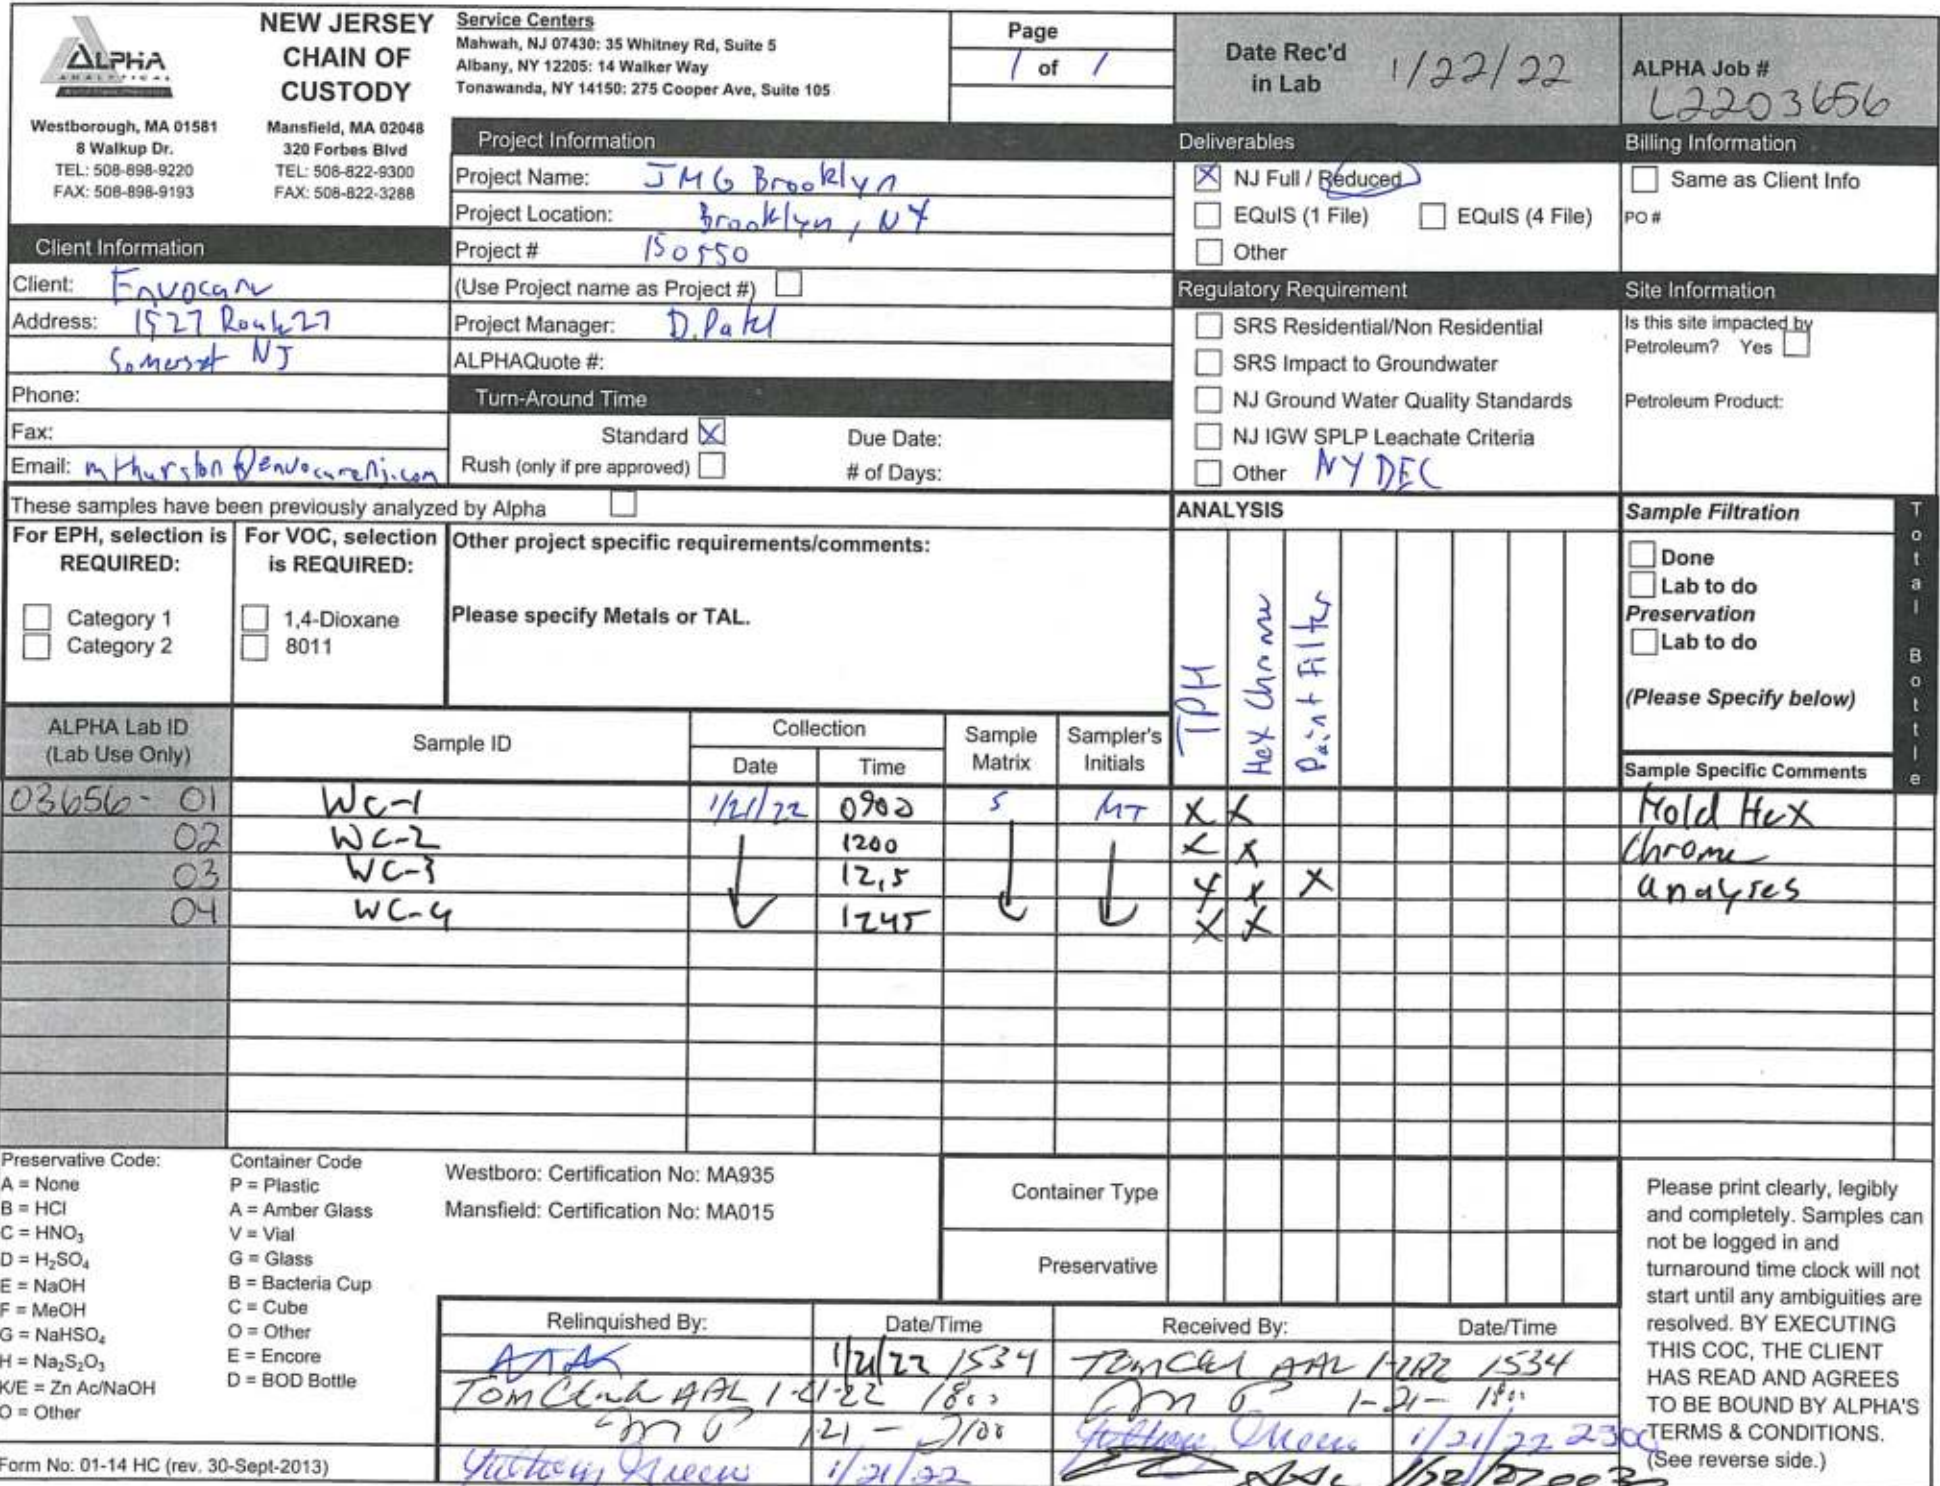 ALPHA
ANALYTICAL
NEW JERSEY
CHAIN OF
CUSTODY
Westborough, MA 01581
8 Walkup Dr.
TEL: 508-898-9220
FAX: 508-898-9193
Mansfield, MA 02048
320 Forbes Blvd
TEL: 508-822-9300
FAX: 508-822-3288
Service Centers
Mahwah, NJ 07430: 35 Whitney Rd, Suite 5
Albany, NY 12205: 14 Walker Way
Tonawanda, NY 14150: 275 Cooper Ave, Suite 105
Page
1 of 1
Date Rec'd
in Lab
1/22/22
ALPHA Job #
L2203656
Client Information
Client: Envocare
Address: 1527 Route 27
Somerset NJ
Phone:
Fax:
Email: mthurston@envocarenj.com
Project Information
Project Name: JMG Brooklyn
Project Location: Brooklyn, NY
Project # 150550
(Use Project name as Project #)
Project Manager: D. Patel
ALPHAQuote #:
Turn-Around Time
Standard X Due Date:
Rush (only if pre approved) # of Days:
Deliverables
X NJ Full / Reduced
EQuIS (1 File) EQuIS (4 File)
Other
Regulatory Requirement
SRS Residential/Non Residential
SRS Impact to Groundwater
NJ Ground Water Quality Standards
NJ IGW SPLP Leachate Criteria
Other NYDEC
Billing Information
Same as Client Info
PO #
Site Information
Is this site impacted by
Petroleum? Yes
Petroleum Product:
These samples have been previously analyzed by Alpha
For EPH, selection is
REQUIRED:
Category 1
Category 2
For VOC, selection
is REQUIRED:
1,4-Dioxane
8011
Other project specific requirements/comments:
Please specify Metals or TAL.
ANALYSIS
TPH
Hex Chrome
Paint Filter
Sample Filtration
Done
Lab to do
Preservation
Lab to do
(Please Specify below)
Total Bottle
ALPHA Lab ID
(Lab Use Only)
Sample ID
Collection
Date Time
Sample
Matrix
Sampler's
Initials
Sample Specific Comments
03656-01 WC-1 1/21/22 0900 S MT X X Hold Hex
02 WC-2 1200 X X Chrome
03 WC-3 X X X analyses
04 WC-4 1245 X X
Preservative Code:
A = None
B = HCl
C = HNO3
D = H2SO4
E = NaOH
F = MeOH
G = NaHSO4
H = Na2S2O3
K/E = Zn Ac/NaOH
O = Other
Container Code
P = Plastic
A = Amber Glass
V = Vial
G = Glass
B = Bacteria Cup
C = Cube
O = Other
E = Encore
D = BOD Bottle
Westboro: Certification No: MA935
Mansfield: Certification No: MA015
Container Type
Preservative
Relinquished By: Date/Time Received By: Date/Time
1/21/22 1534 AAL 1534
AAL 1-21-22 1800 1-21- 1800
1/21/22 2300
1/21/22
Please print clearly, legibly
and completely. Samples can
not be logged in and
turnaround time clock will not
start until any ambiguities are
resolved. BY EXECUTING
THIS COC, THE CLIENT
HAS READ AND AGREES
TO BE BOUND BY ALPHA'S
TERMS & CONDITIONS.
(See reverse side.)
Form No: 01-14 HC (rev. 30-Sept-2013)